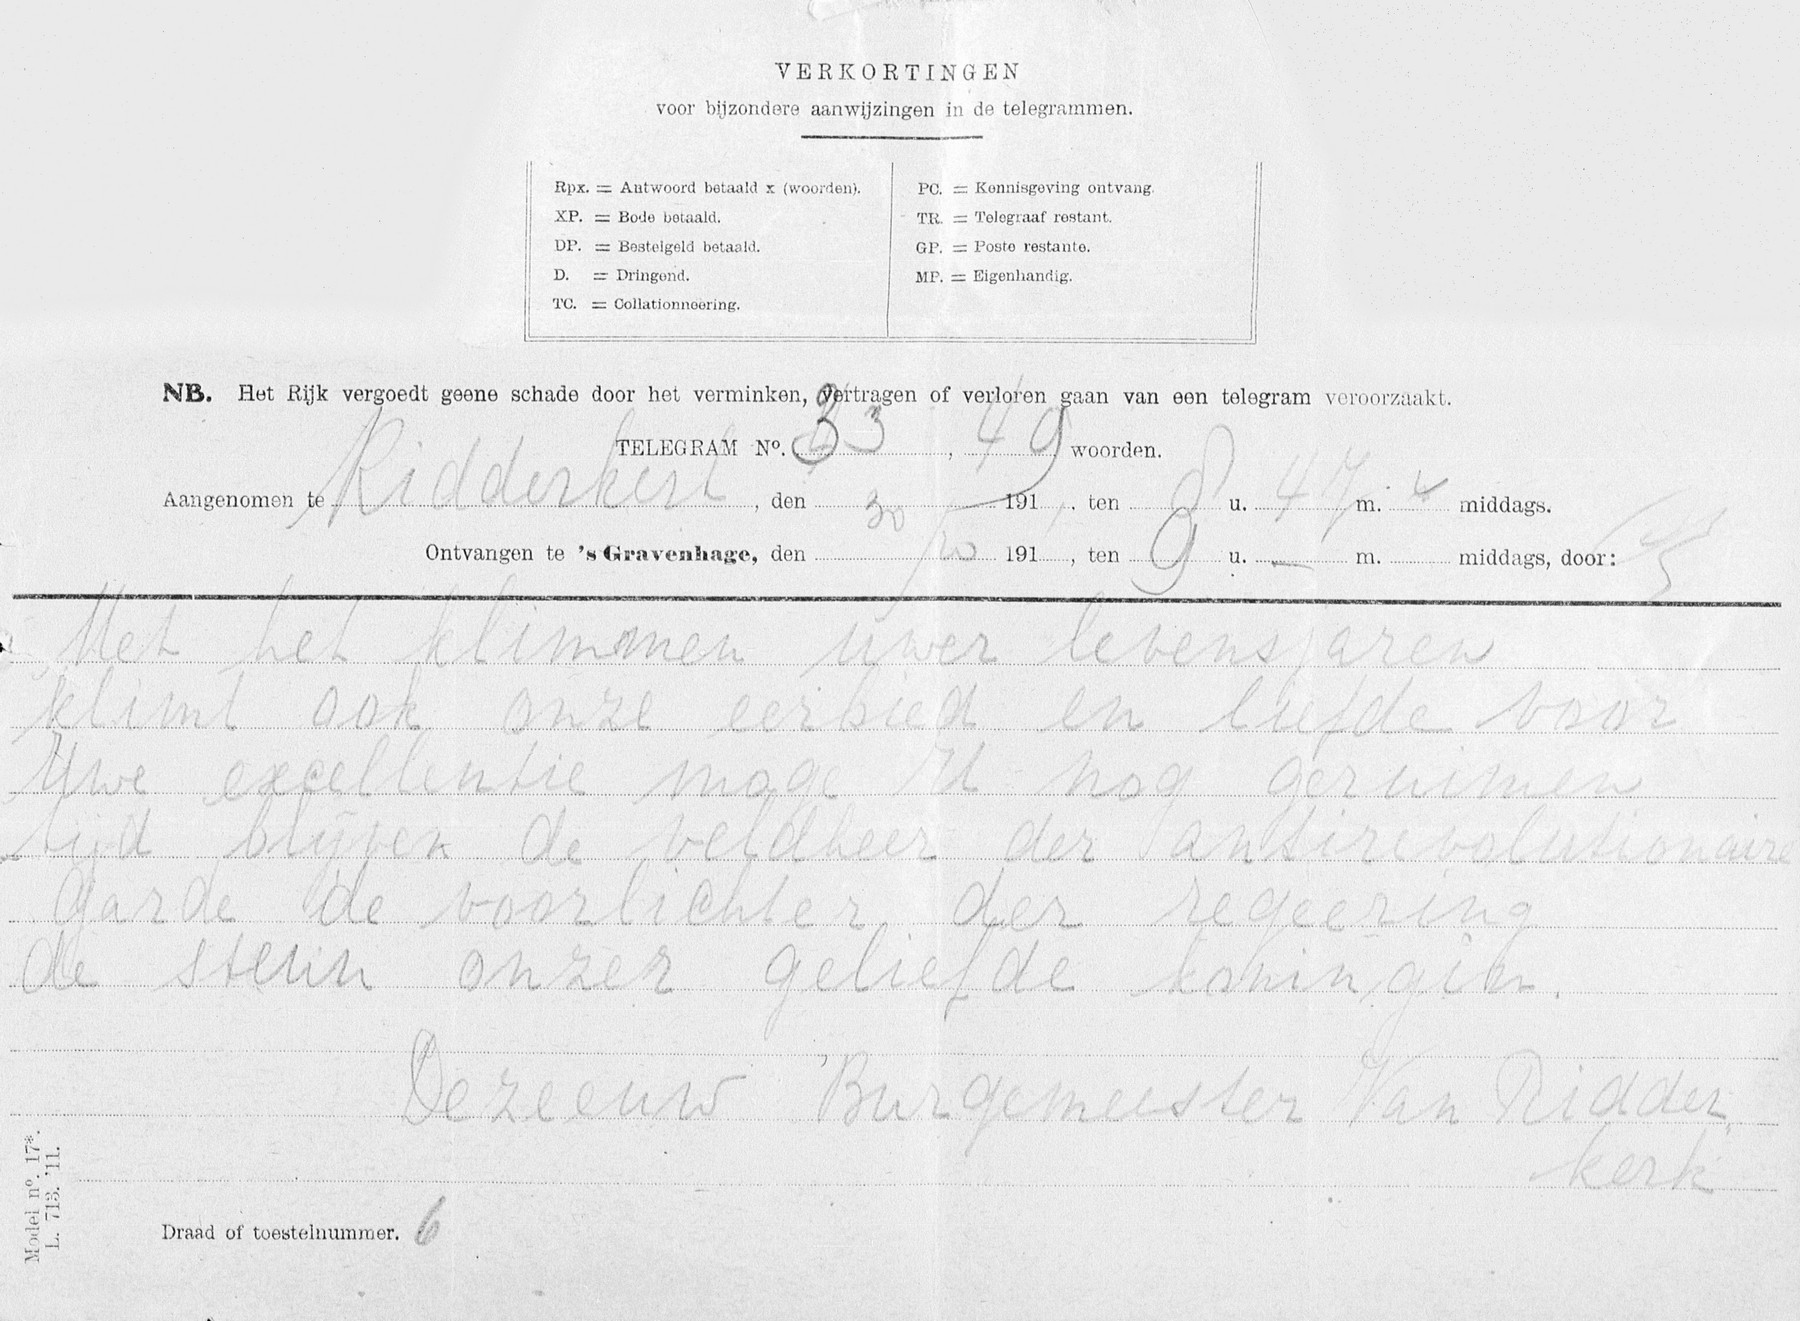 VERKORTINGEN
voor bijzondere aanwijzingen in de telegrammen.
Rpx. = Antwoord betaald x (woorden).
XP. = Bode betaald.
DP. = Bestelgeld betaald.
D. = Dringend.
TC. = Collationneering.
PC. = Kennisgeving ontvang.
TR. = Telegraaf restant.
GP. = Poste restante.
MP. = Eigenhandig.
NB. Het Rijk vergoedt geene schade door het verminken, vertragen of verloren gaan van een telegram veroorzaakt.
TELEGRAM No. 33, 49 woorden.
Aangenomen te Ridderkerk, den 30/10 191 , ten 8 u. 47 m. middags.
Ontvangen te 's Gravenhage, den 191 , ten 9 u. — m. middags, door:
Met het klimmen uwer levensjaren
klimt ook onze eerbied en liefde voor
Uwe excellentie moge U nog geruimen
tijd blijven de veldheer der antirevolutionaire
garde de voorlichter der regeering
de steun onzer geliefde koningin.
Dezeeuw Burgemeester Van Ridder
kerk
Draad of toestelnummer. 6
Model no. 17*.
L. 713. '11.